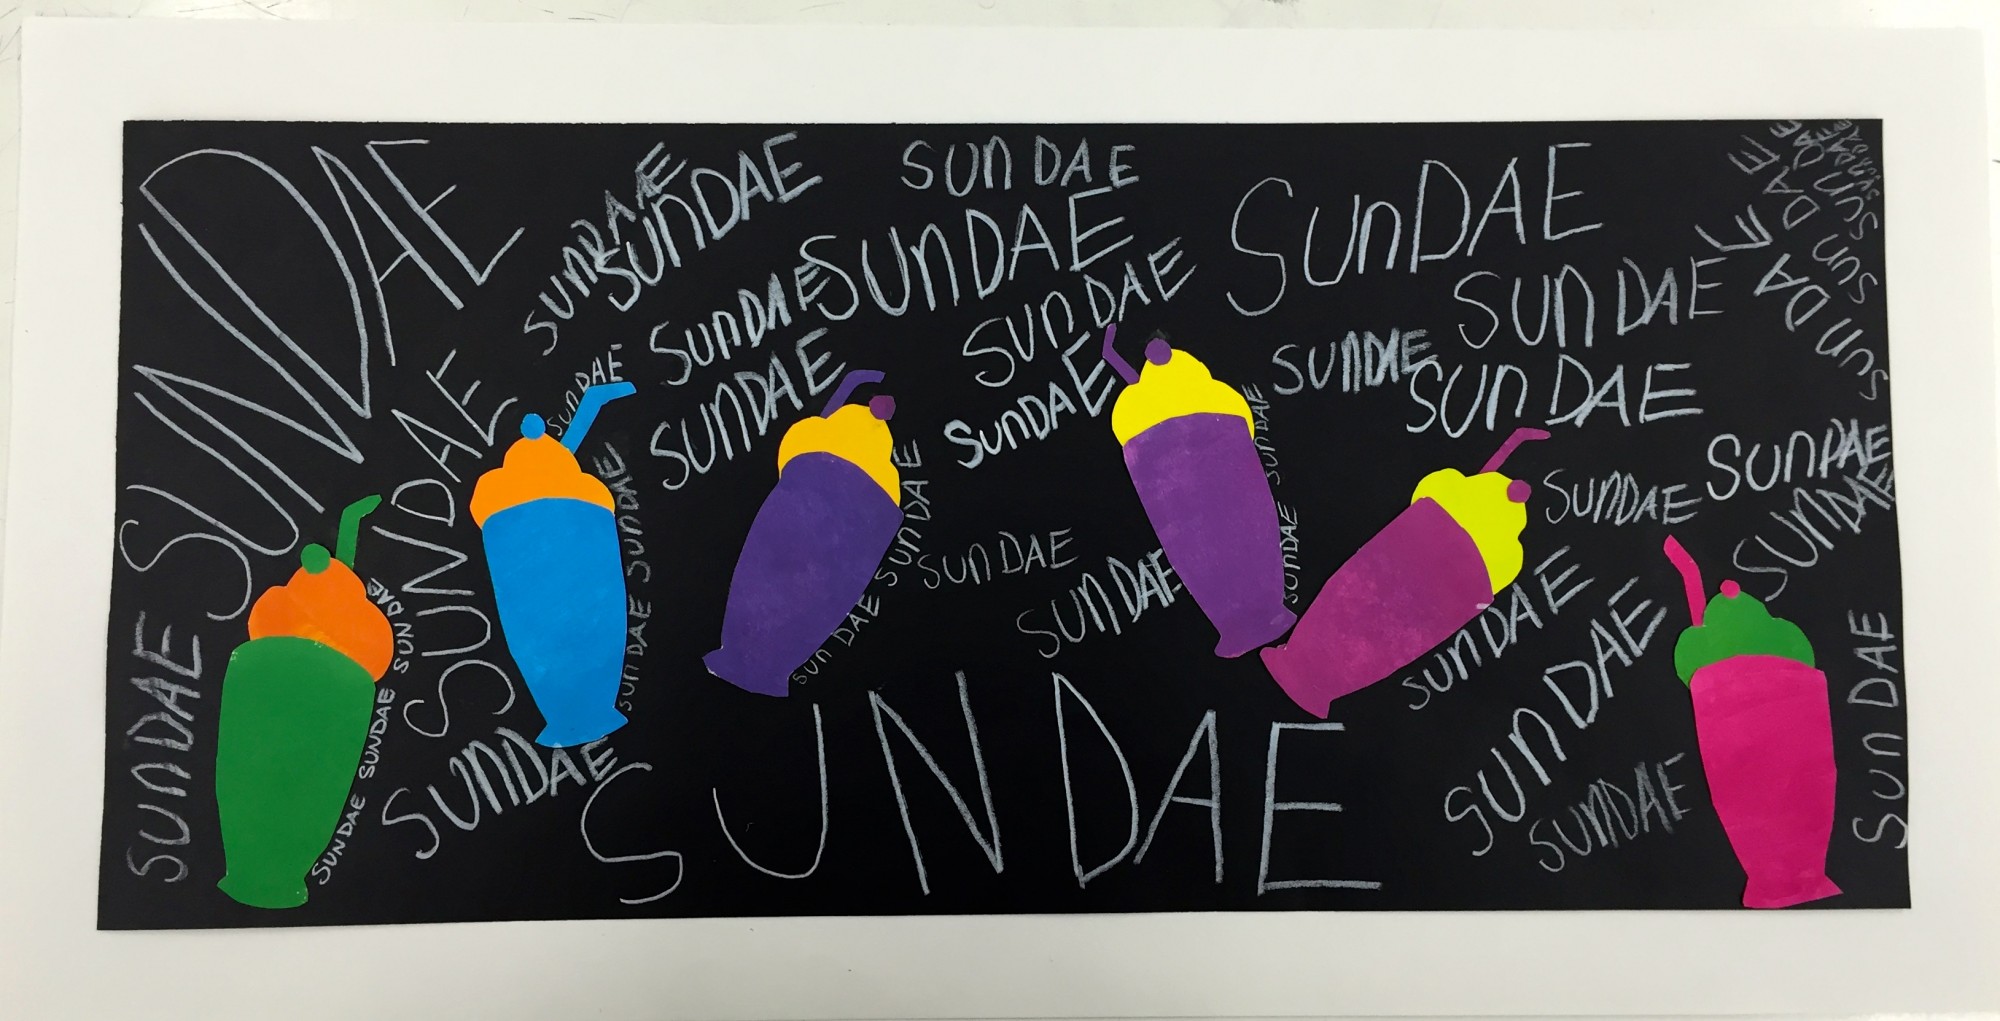 SUNDAE
SUNDAE
SUNDAE
SUN DAE
SUNDAE
SUNDAE
SUNDAE
SUNDAE
SUNDAE
SUNDAE
SUNDAE
SUNDAE
SUNDAE
SUNDAE
SUNDAE
SUNDAE
SUNDAE
SUNDAE
SUNDAE
SUNDAE
SUNDAE
SUNDAE
SUNDAE SUNDAE SUNDAE
SUNDAE SUNDAE
SUNDAE SUNDAE
SUNDAE
SUNDAE
SUNDAE
SUNDAE
SUNDAE
SUNDAE SUNDAE SUNDAE
SUNDAE
SUNDAE
SUNDAE
SUNDAE
SUNDAE